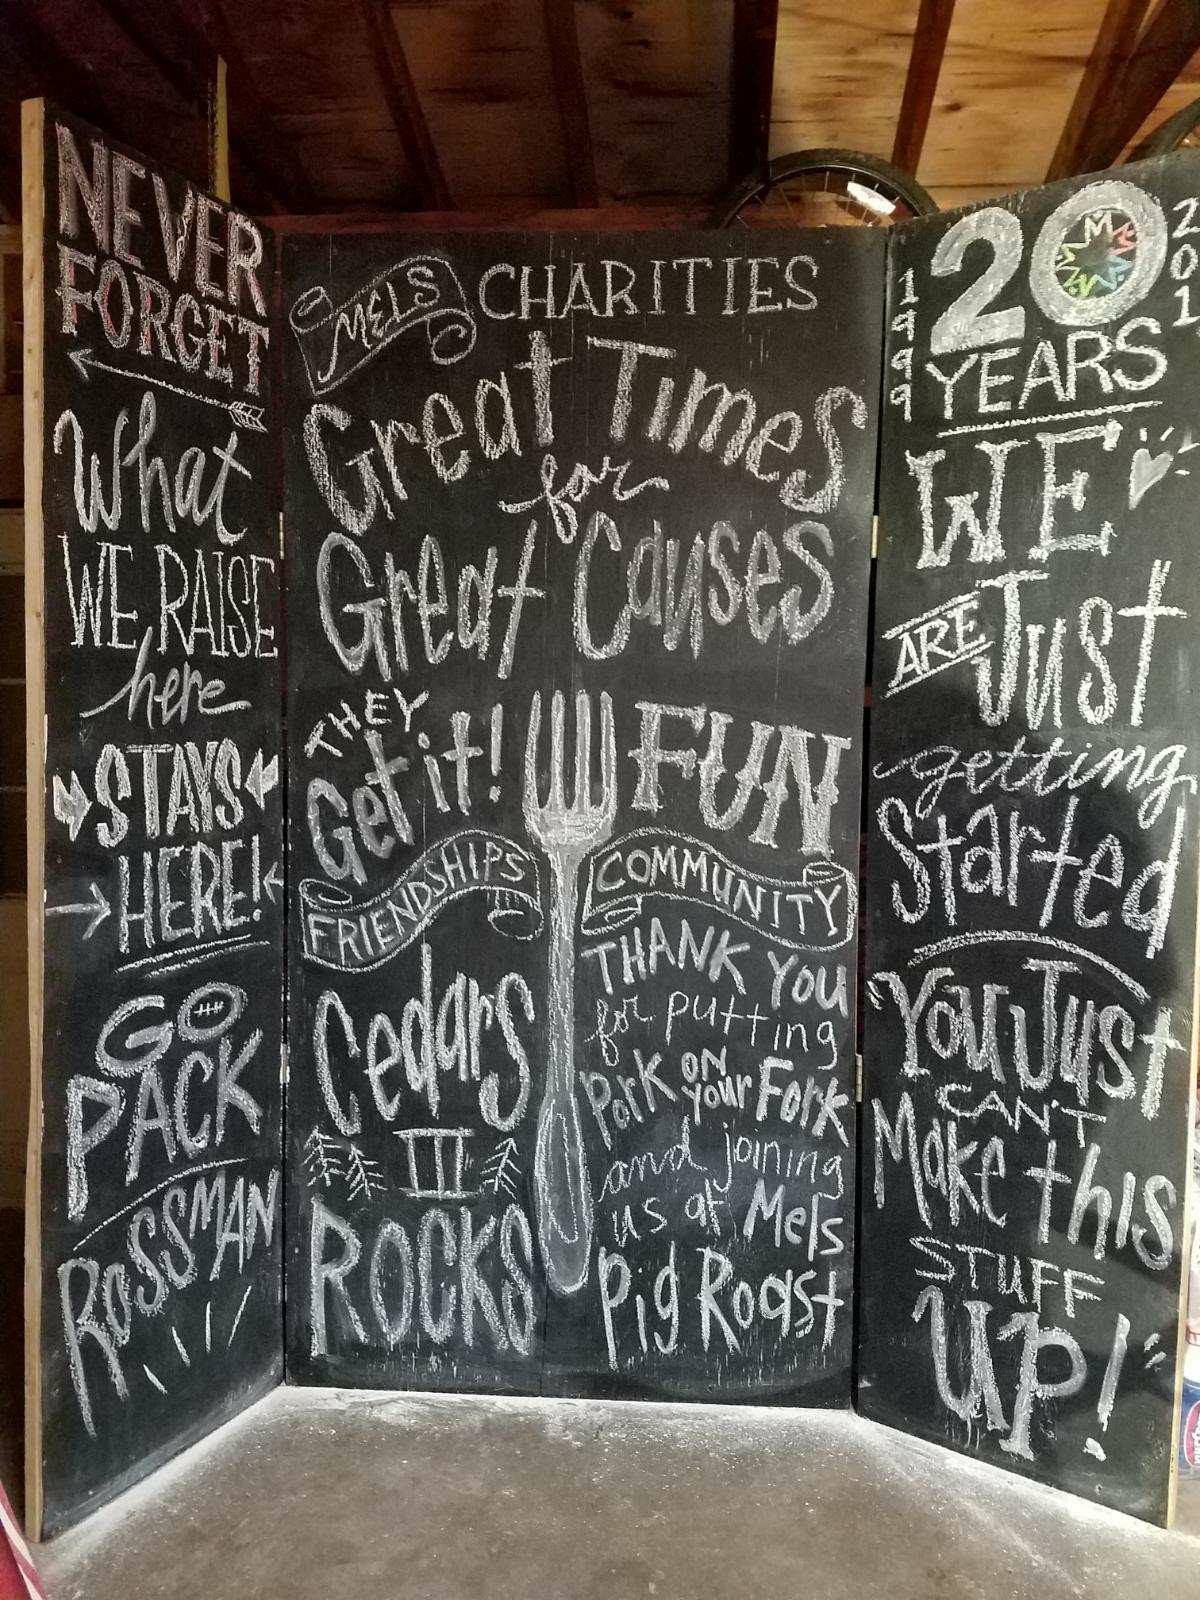 NEVER
FORGET
What
WE RAISE
here
STAYS
HERE!
GO
PACK
ROSSMAN
MELS CHARITIES
Great Times
for
Great Causes
THEY
Get it!
FUN
FRIENDSHIPS
COMMUNITY
Cedars
III
ROCKS
THANK YOU
for putting
Pork ON
your Fork
and joining
us at Mels
Pig Roast
1999
20
201
YEARS
WE
ARE Just
getting
Started
"You Just
CAN'T
Make this
STUFF
UP!"